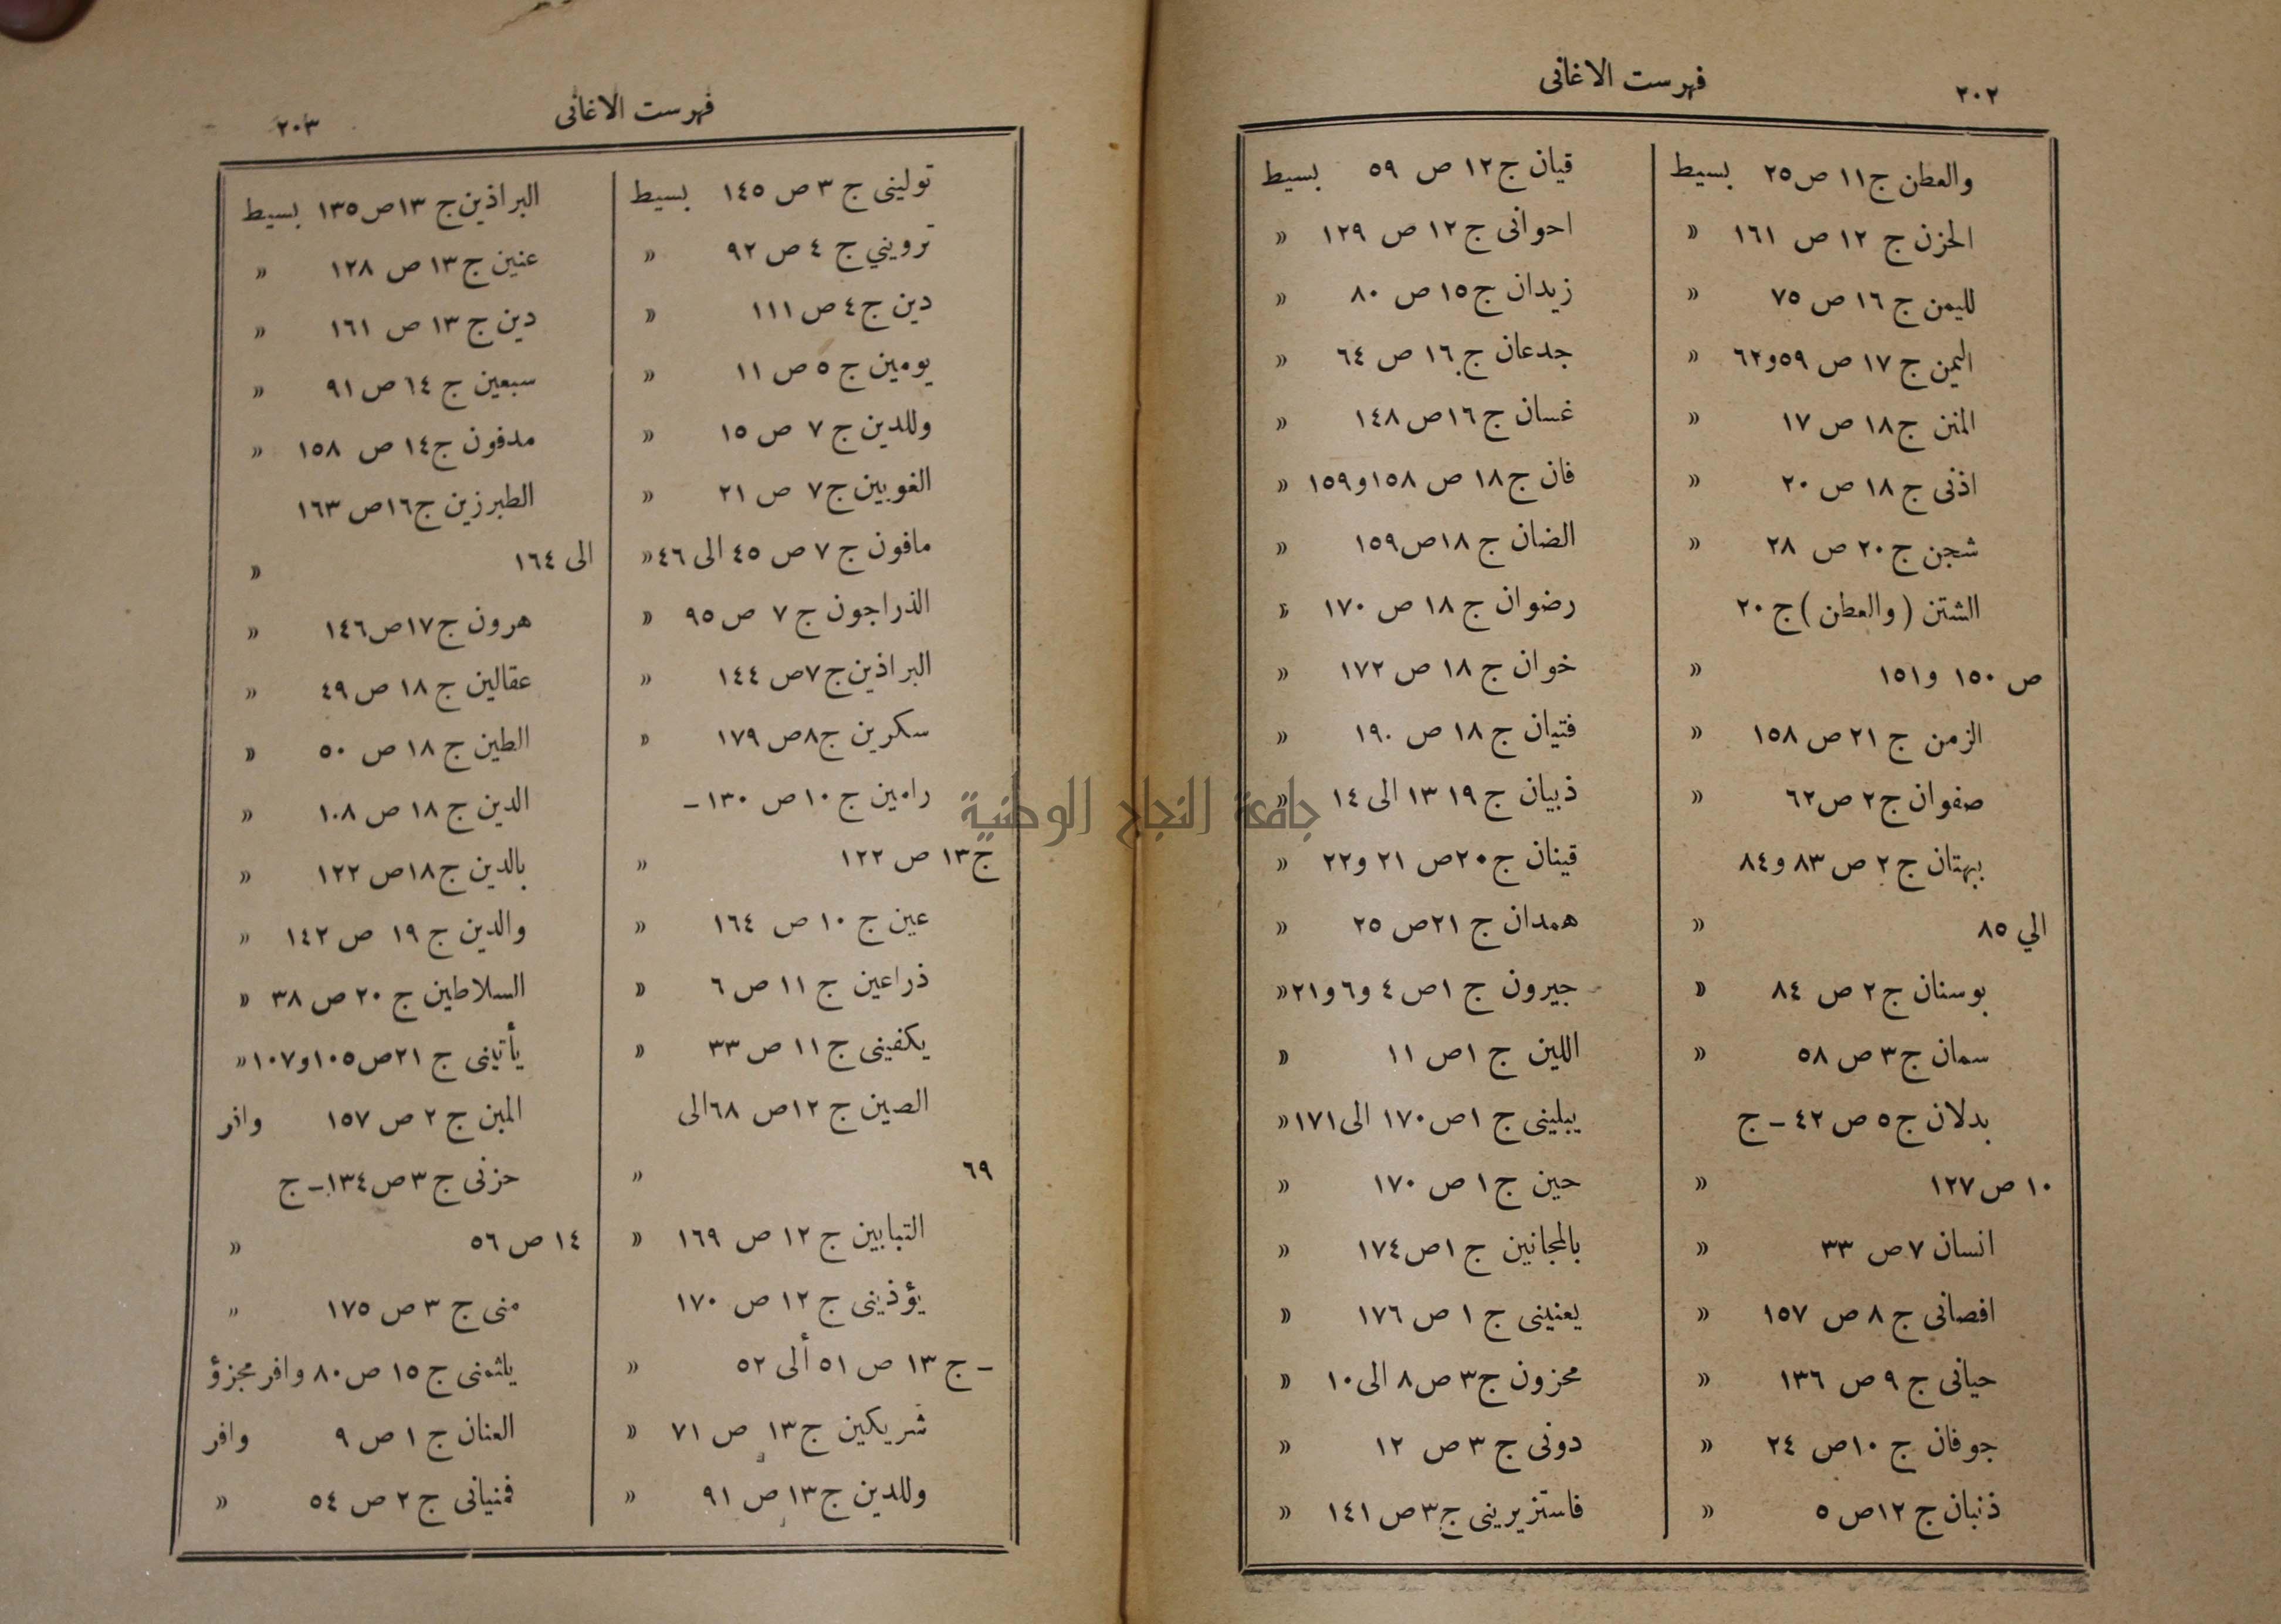 ٢٠٢
فهرست الاغانى
والعطن ج١١ ص٢٥ بسيط
الحزن ج ١٢ ص ١٦١ «
لليمن ج ١٦ ص ٧٥ «
اليمن ج ١٧ ص ٥٩و٦٢ «
المنن ج١٨ ص ١٧ «
اذنى ج ١٨ ص ٢٠ «
شجن ج ٢٠ ص ٢٨ «
الشتن ( والعطن ) ج ٢٠
ص ١٥٠ و١٥١ «
الزمن ج ٢١ ص ١٥٨ «
صفوان ج٢ ص٦٢ «
ببهتان ج ٢ ص ٨٣ و٨٤
الي ٨٥ «
بوسنان ج٢ ص ٨٤ «
سمان ج٣ ص ٥٨ «
بدلان ج٥ ص ٤٢ – ج
١٠ ص١٢٧ «
انسان ٧ ص ٣٣ «
افصانى ج ٨ ص ١٥٧ «
حيانى ج ٩ ص ١٣٦ «
جوفان ج ١٠ص ٢٤ «
ذنبان ج ١٢ص ٥ «
قيان ج١٢ ص ٥٩ بسيط
احوانى ج١٢ ص ١٢٩ «
زيدان ج١٥ ص ٨٠ «
جدعان ج١٦ ص ٦٤ «
غسان ج١٦ص ١٤٨ «
فان ج١٨ ص ١٥٨و١٥٩ «
الضان ج ١٨ص١٥٩ «
رضوان ج ١٨ ص ١٧٠ «
خوان ج ١٨ ص ١٧٢ «
فتيان ج ١٨ ص ١٩٠ «
ذبيان ج ١٩ ١٣ الى ١٤ «
قينان ج ٢٠ص ٢١ و٢٢ «
همدان ج ٢١ص ٢٥ «
جيرون ج ١ص ٤ و٦ و٢١ «
اللين ج ١ص ١١ «
يبلينى ج ١ص ١٧٠ الى١٧١ «
حين ج ١ ص ١٧٠ «
بالمجانين ج ١ص١٧٤ «
يعنينى ج ١ ص ١٧٦ «
محزون ج٣ ص٨ الى١٠ «
دونى ج ٣ ص ١٢ «
فاستزيرينى ج٣ ص ١٤١ «
فهرست الاغانى
٢٠٣
تولينى ج ٣ ص ١٤٥ بسيط
ترويني ج ٤ ص ٩٢ «
دين ج٤ ص ١١١ «
يومين ج ٥ ص ١١ «
وللدين ج ٧ ص ١٥ «
الغوبين ج٧ ص ٢١ «
مافون ج ٧ ص ٤٥ الى ٤٦ «
الذراجون ج ٧ ص ٩٥ «
البراذين ج٧ص ١٤٤ «
سكرين ج٨ص ١٧٩ «
رامين ج ١٠ ص ١٣٠ –
ج١٣ ص ١٢٢ «
عين ج ١٠ ص ١٦٤ «
ذراعين ج ١١ ص ٦ «
يكفينى ج ١١ ص ٣٣ «
الصين ج ١٢ص ٦٨الى
٦٩ «
التبابين ج ١٢ ص ١٦٩ «
يؤذينى ج ١٢ ص ١٧٠
– ج ١٣ ص ٥١ ألى ٥٢ «
شريكين ج١٣ ص ٧١ «
وللدين ج١٣ ص ٩١ «
البراذين ج ١٣ص١٣٥ بسيط
عنين ج ١٣ ص ١٢٨ «
دين ج ١٣ ص ١٦١ «
سبعين ج ١٤ ص ٩١ «
مدفون ج١٤ ص ١٥٨ «
الطبرزين ج١٦ص ١٦٣
الى ١٦٤ «
هرون ج١٧ص١٤٦ «
عقالين ج ١٨ ص ٤٩ «
الطين ج ١٨ ص ٥٠ «
الدين ج ١٨ ص ١٠٨ «
بالدين ج١٨ص ١٢٢ «
والدين ج ١٩ ص ١٤٢ «
السلاطين ج ٢٠ ص ٣٨ «
يأتينى ج ٢١ص١٠٥و١٠٧ «
المبن ج ٢ ص ١٥٧ وافر
حزنى ج ٣ ص١٣٤ – ج
١٤ ص ٥٦ «
منى ج ٣ ص ١٧٥ «
يلثمنى ج ١٥ ص ٨٠ وافر مجزؤ
العنان ج ١ ص ٩ وافر
فمنيانى ج ٢ ص ٥٤ «
جامعة النجاح الوطنية